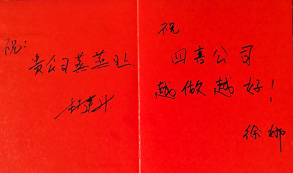 祝:
贵公司蒸蒸日上
祝
四喜公司
越做越好!
徐娜